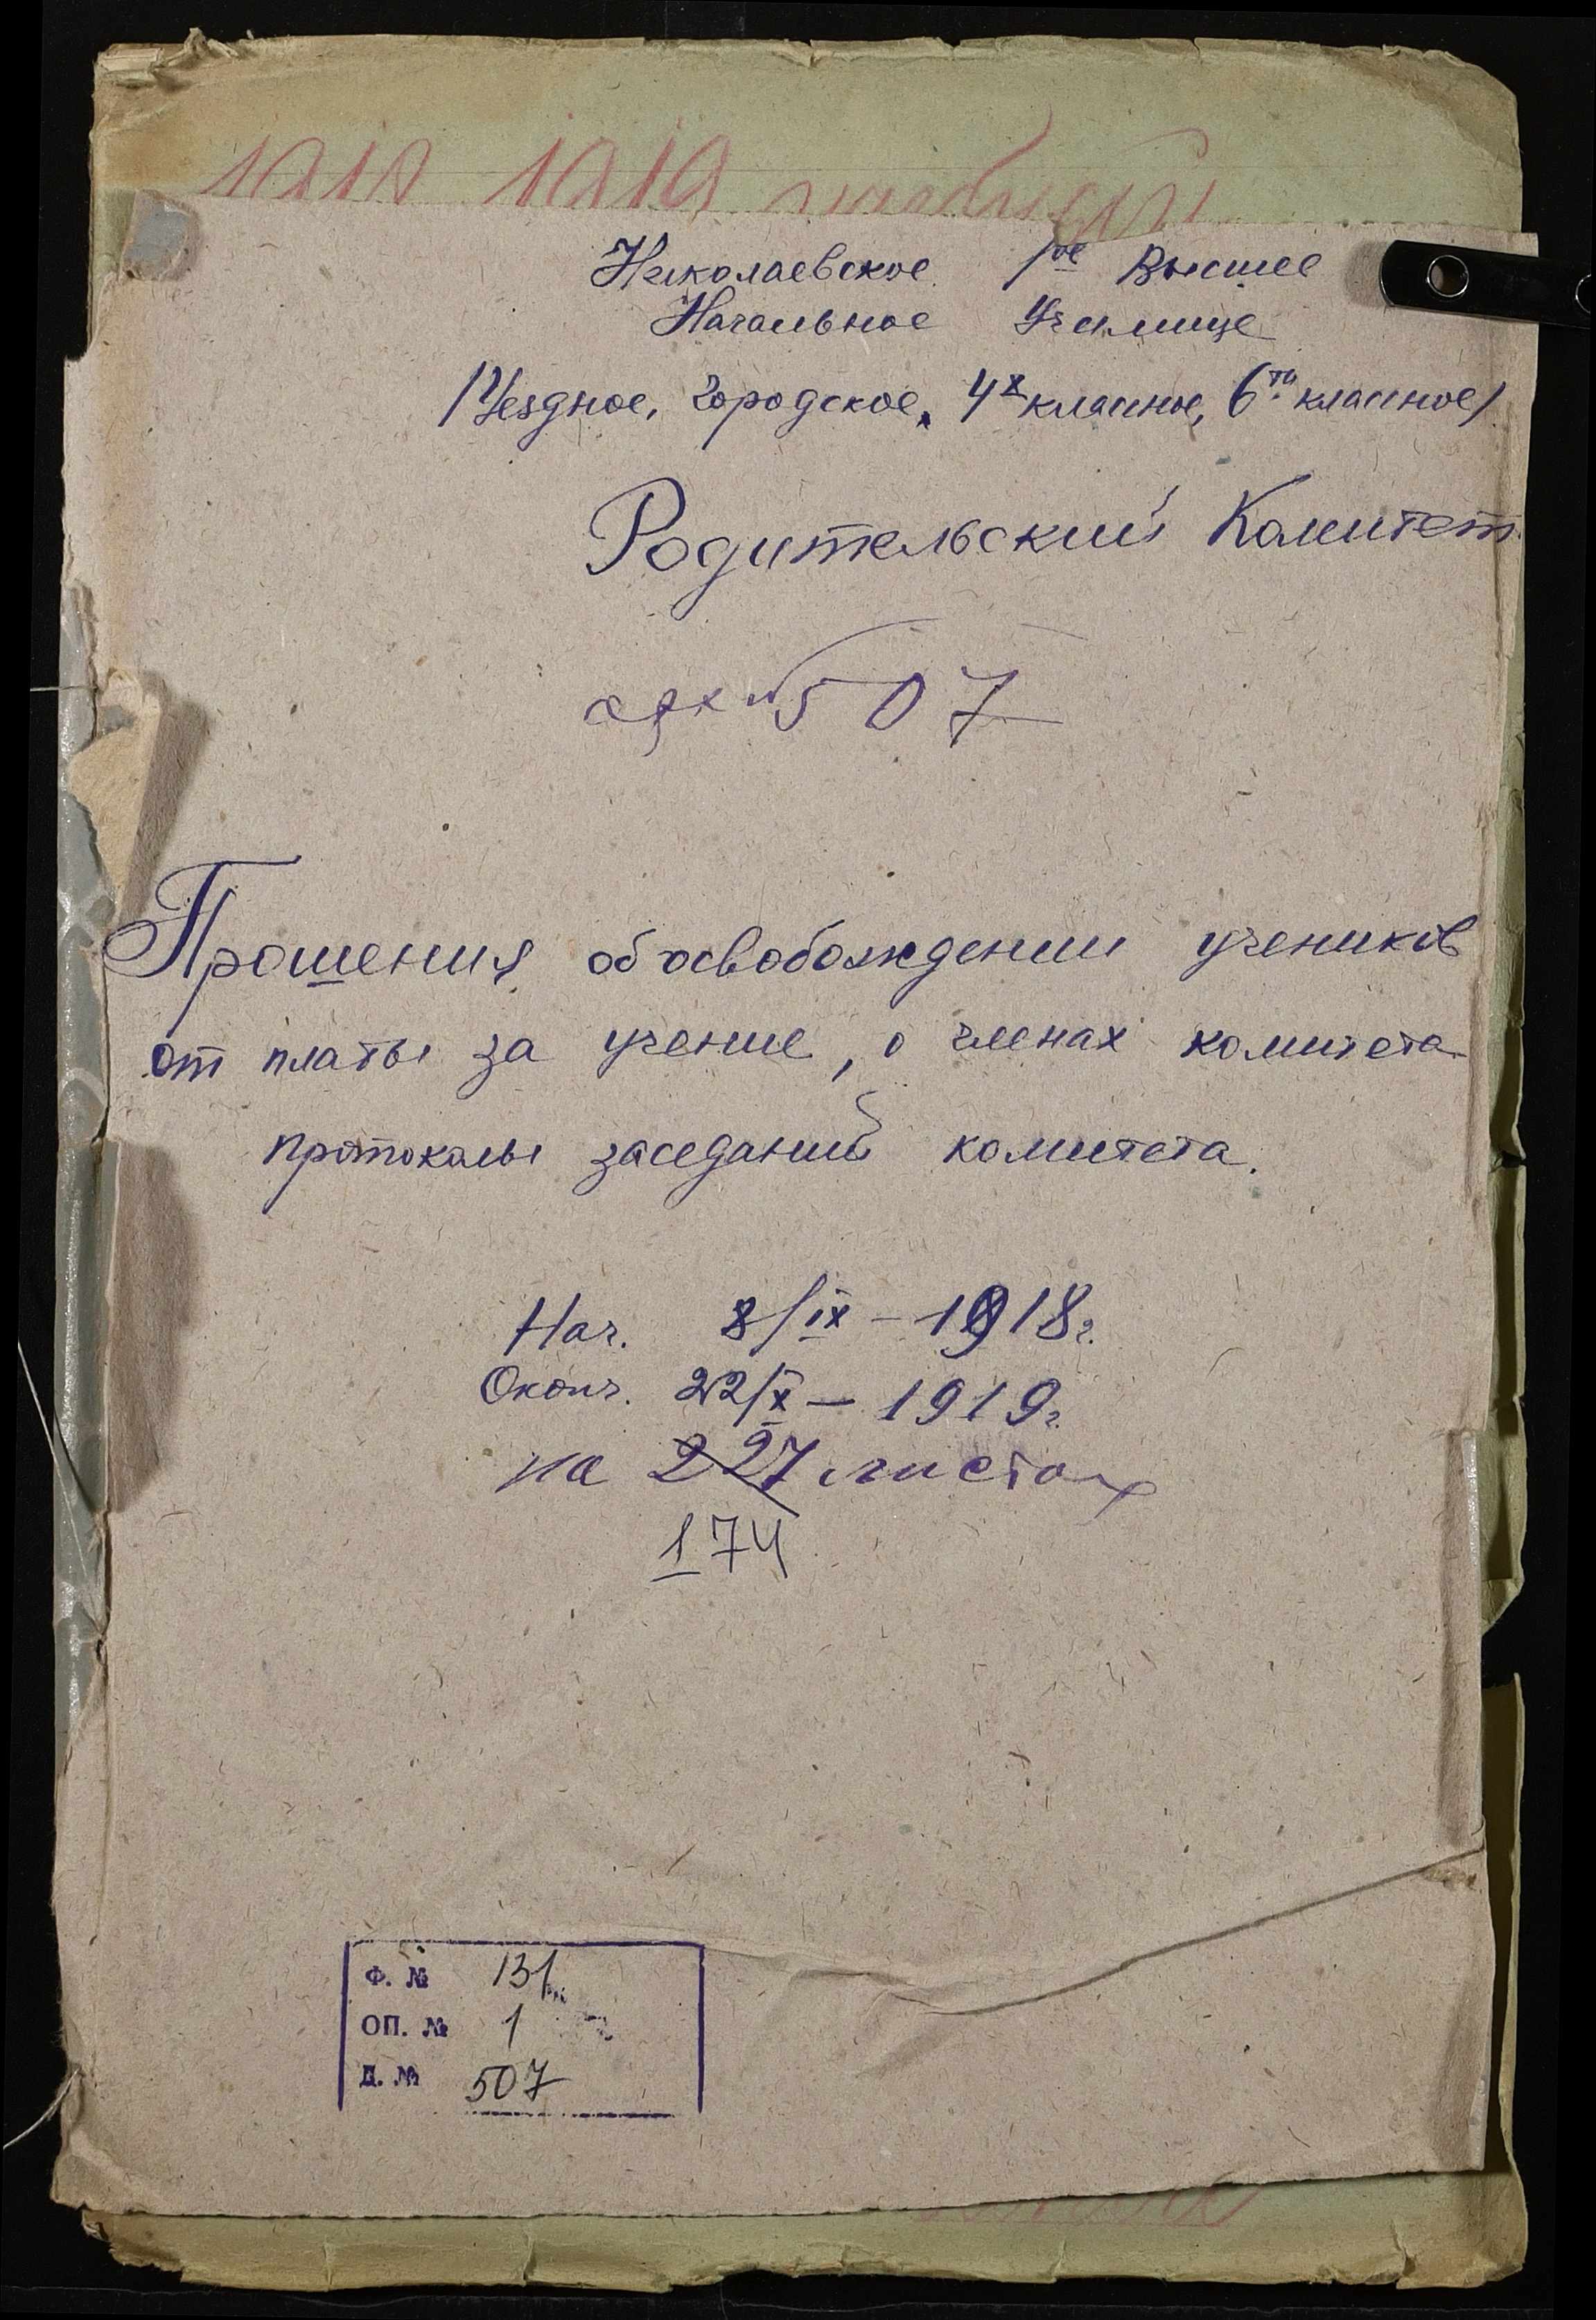 1918 1919
Николаевское 1ое Высшее
Начальное Училище
/Уездное, городское, 4х классное, 6ти классное/
Родительский Комитет
арх № 507
Прошения об освобождении учеников
от платы за учение, о членах комитета
протоколы заседаний комитета.
Нач. 8/IX – 1918 г.
Оконч. 22/X – 1919 г.
на 227 листах
174
Ф. № 131
ОП. № 1
Д. № 507